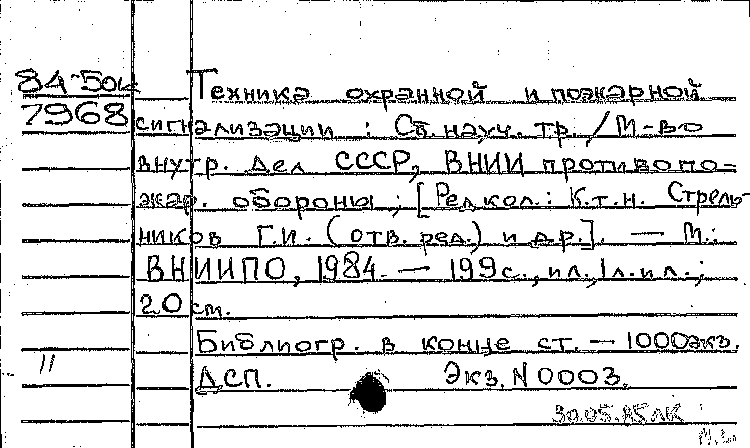 84-50к Техника охранной и пожарной
7968 сигнализации : Сб. науч. тр. / М-во
внутр. дел СССР, ВНИИ противопо-
жар. обороны ; [Редкол.: К.т.н. Стрель-
ников Г.И. (отв. ред.) и др.]. — М.:
ВНИИПО, 1984. — 199 с., ил., 1 л. ил.;
20 см.
Библиогр. в конце ст. — 1000 экз.
ДСП. Экз. N 0003.
30.05.85